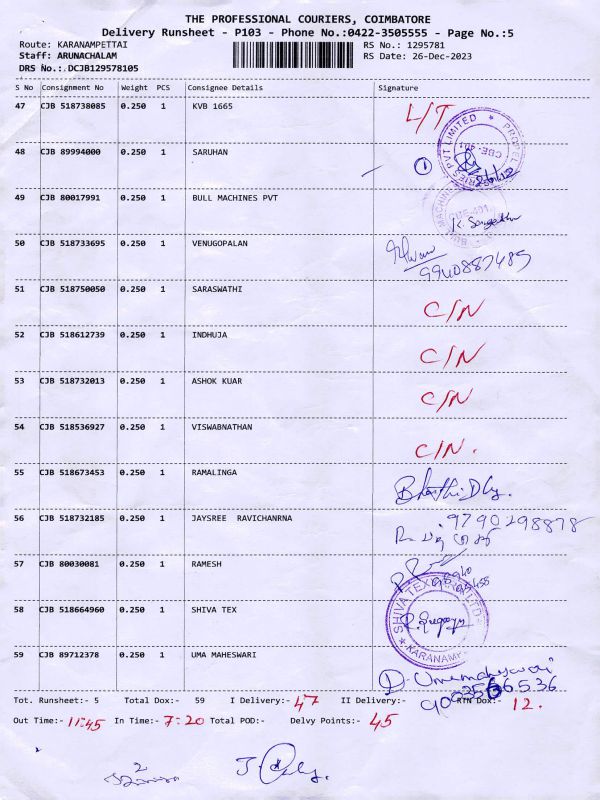 THE PROFESSIONAL COURIERS, COIMBATORE
Delivery Runsheet - P103 - Phone No.:0422-3505555 - Page No.:5
Route: KARANAMPETTAI RS No.: 1295781
Staff: ARUNACHALAM RS Date: 26-Dec-2023
DRS No.: DCJB129578105
S No Consignment No Weight PCS Consignee Details Signature
47 CJB 518738085 0.250 1 KVB 1665 L/T
48 CJB 89994000 0.250 1 SARUHAN 1
49 CJB 80017991 0.250 1 BULL MACHINES PVT
50 CJB 518733695 0.250 1 VENUGOPALAN
9940887485
51 CJB 518750050 0.250 1 SARASWATHI C/N
52 CJB 518612739 0.250 1 INDHUJA C/N
53 CJB 518732013 0.250 1 ASHOK KUAR C/N
54 CJB 518536927 0.250 1 VISWABNATHAN C/N.
55 CJB 518673453 0.250 1 RAMALINGA
56 CJB 518732185 0.250 1 JAYSREE RAVICHANRNA 9790298878
57 CJB 80030081 0.250 1 RAMESH
58 CJB 518664960 0.250 1 SHIVA TEX
SHIVA TEX KARANAMP
59 CJB 89712378 0.250 1 UMA MAHESWARI D. Umamaheswari
Tot. Runsheet:- 5 Total Dox:- 59 I Delivery:- 47 II Delivery:- RTN Dox:- 12.
Out Time:- 11:45 In Time:- 7:20 Total POD:- Delvy Points:- 45
2